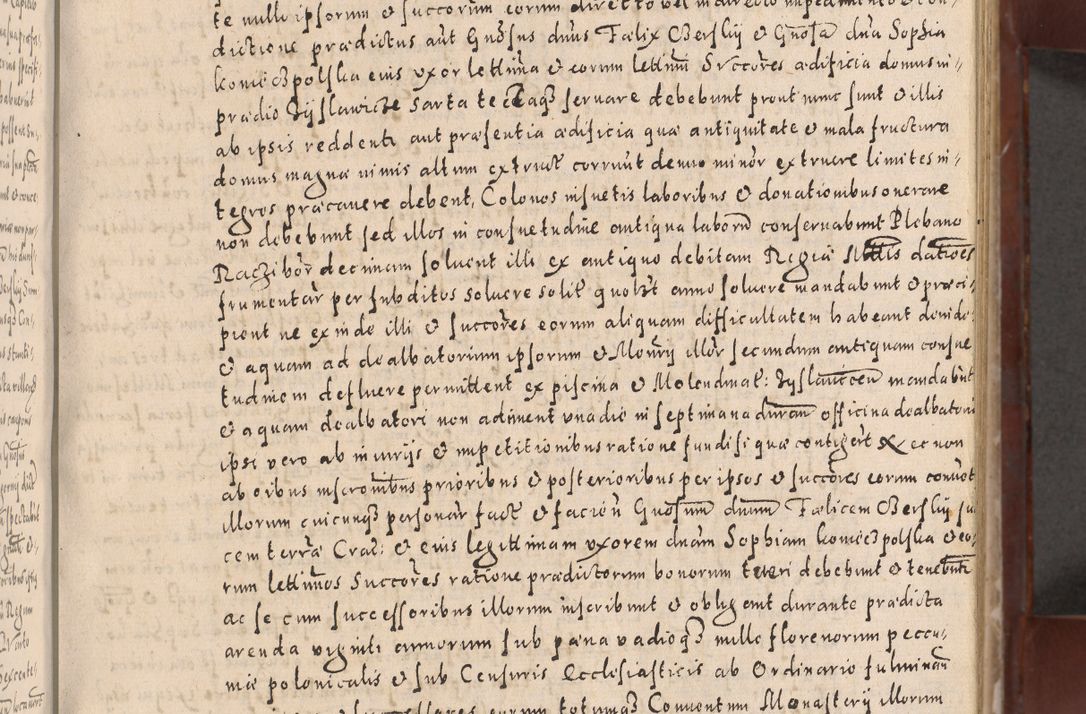 te nullo ipsorum et successorum eorum directo vel indirecto impedimento et con-
dictione prædictus aut Gnosus dnus Fælix Oberskij et Gnosa dna Sophia
Koniecpolska eius vxor lettima et eorum lettimi Succores ædificia domus in-
prædio Zyslawicze sarta tectaq3 seruare debebunt prout nunc sunt et illis
ab ipsis reddent aut præsentia ædificia quæ antiquitate et mala structura
domus magnæ nimis altum extruct corruut denuo minor extruere limites in-
tegros præcauere debent, Colonos insuetis laboribus et donationibus onerare
non debebunt sed illos in consuetudine antiqua laborū conseruabunt Plebano
Raczibor decimam soluent illi ex antiquo debitam Regiæ dationes
frumentar per subditos soluere solit quolibt anno soluere mandabunt et præci-
pient ne exinde illi et succores eorum aliquam difficultatem habeant deinde
et aquam ad dealbatorium ipsorum et Monrij illor secundum antiquam consue
tudinem defluere permittent ex piscina et Molendinat: Zyslauicen mandabūt
et aquam dealbatori non adiment vnadie in septimana duran officina dealbatori
ipsi vero ab iniurijs et impetitionibus ratione fundi si quæ contigert ex ac non
ab oribus inscronibus prioribus et posterioribus per ipsos et succores eorum conuot
illorum cuicunq3 personar fact et facien Gnosum dnum Fælicem Oberskij su
cem terræ Crac: et eius legittimam vxorem dnam Sophiam Koniecpolska et eo-
rum lettimos Succores ratione prædictorum bonorum tueri debebunt et tenebūti
ac se cum successoribus illorum inscribunt et obligent durante prædicta
arenda viginti annorum sub pæna vadioq3 mille florenorum peccu-
niæ polonicalis et sub Censuris Ecclesiasticis ab Ordinario fulminan
eorum totumq3 Conuentum Monasterij illorum